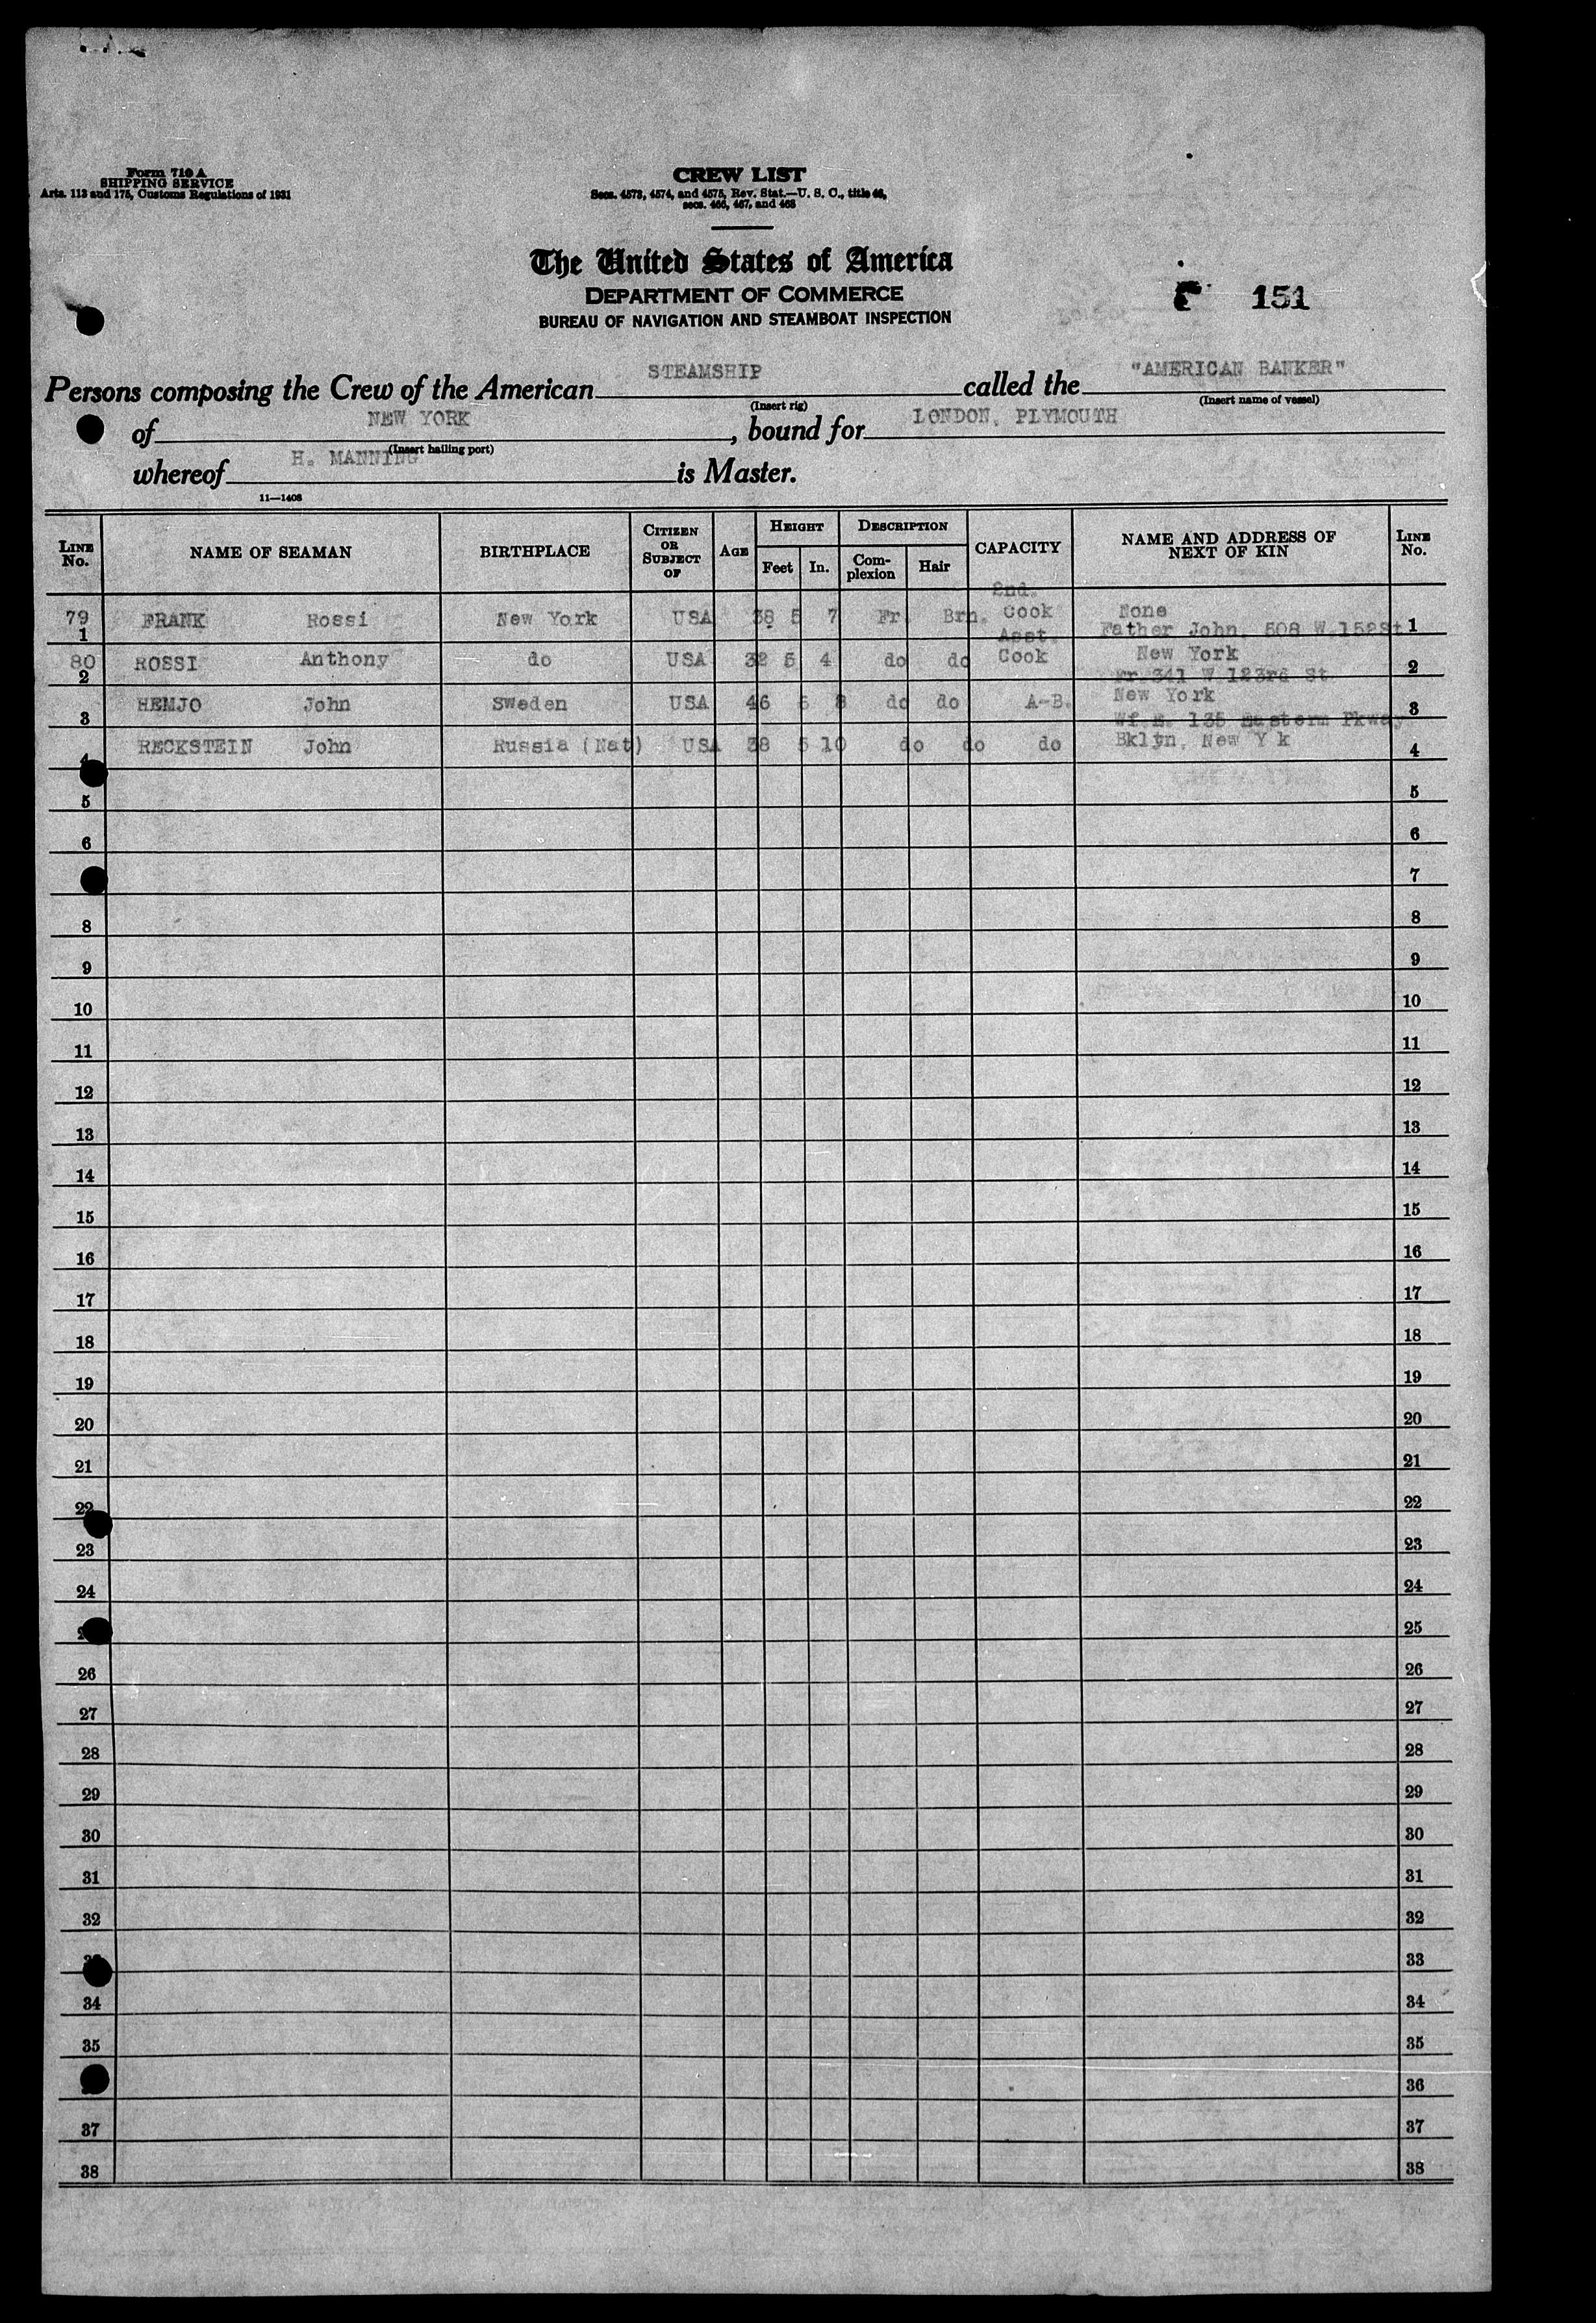 Form 710 A
SHIPPING SERVICE
Arts. 113 and 175, Customs Regulations of 1931
CREW LIST
Secs. 4573, 4574, and 4575, Rev. Stat.—U. S. C., title 46,
secs. 466, 467, and 468
The United States of America
DEPARTMENT OF COMMERCE
BUREAU OF NAVIGATION AND STEAMBOAT INSPECTION
151
Persons composing the Crew of the American STEAMSHIP called the "AMERICAN BANKER"
(Insert rig) (Insert name of vessel)
of NEW YORK, bound for LONDON, PLYMOUTH
(Insert hailing port)
whereof H. MANNING is Master.
11—1408
LINE No. NAME OF SEAMAN BIRTHPLACE CITIZEN OR SUBJECT OF AGE HEIGHT Feet In. DESCRIPTION Complexion Hair CAPACITY NAME AND ADDRESS OF NEXT OF KIN LINE No.
79 1 FRANK Rossi New York USA 38 5 7 Fr. Brn. 2nd. Cook None 1
80 2 ROSSI Anthony do USA 32 5 4 do do Asst. Cook Father John, 508 W.152St New York 2
3 HEMJO John Sweden USA 46 5 8 do do A-B. Fr 341 W 123rd St New York 3
4 RECKSTEIN John Russia (Nat) USA 38 5 10 do do do Wf E. 135 Eastern Pkway Bklyn, New Y k 4
5 5
6 6
7
8 8
9 9
10 10
11 11
12 12
13 13
14 14
15 15
16 16
17 17
18 18
19 19
20 20
21 21
22 22
23 23
24 24
25
26 26
27 27
28 28
29 29
30 30
31 31
32 32
33
34 34
35 35
36
37 37
38 38